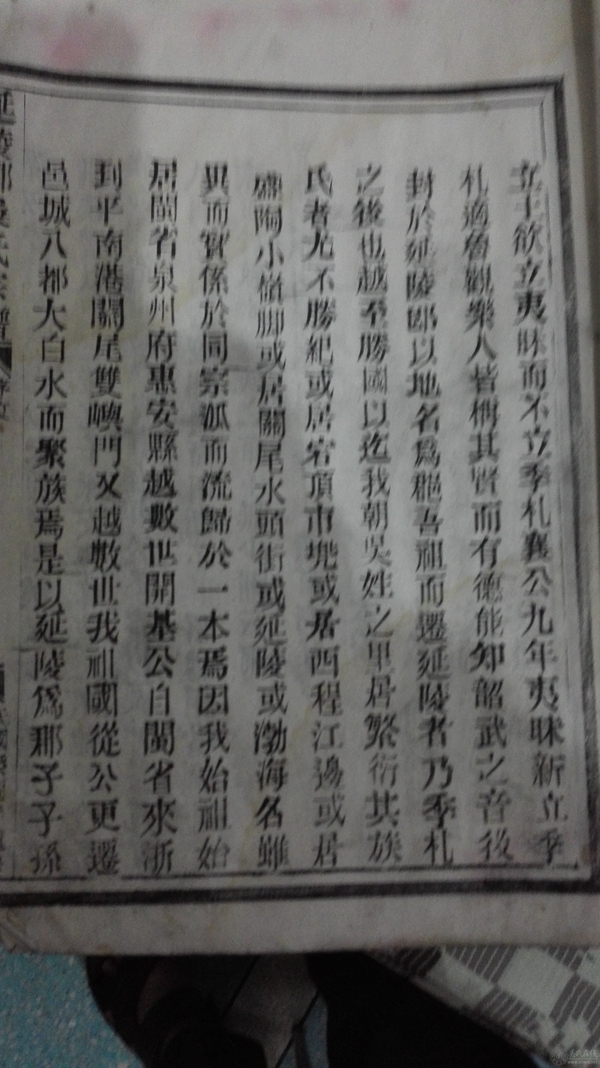 立主欲立夷昧而不立季札襄公九年夷昧新立季
札適魯觀樂人皆稱其賢而有德能知韶武之音後
封於延陵郡以地名為郡吾祖而遷延陵者乃季札
之後也越至勝國以迄我朝吳姓之里居繁衍其族
氏者尤不勝紀或居宕頂市垗或居西程江邊或居
盛陶小嶺脚或居關尾水頭街或延陵或渤海名雖
異而實係於同宗派而流歸於一本焉因我始祖始
居閩省泉州府惠安縣越數世開基公自閩省來浙
到平南港關尾雙嶼門又越數世我祖國從公更遷
邑城八都大白水而聚族焉是以延陵為郡子子孫
延陵郡吳氏宗譜